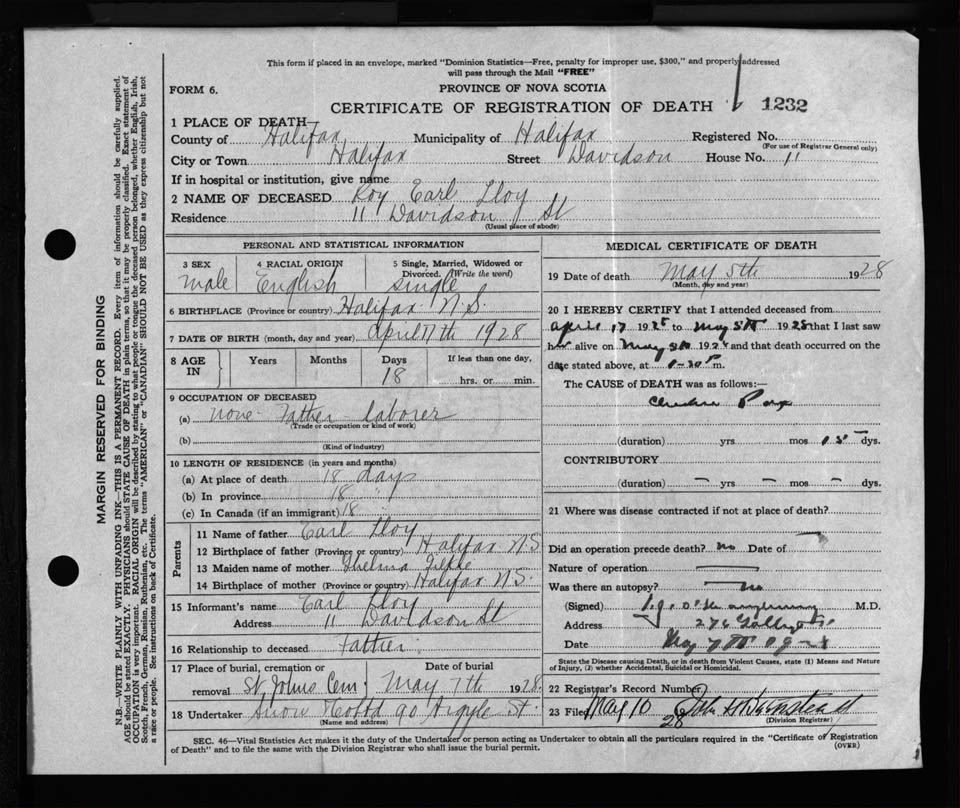 This form if placed in an envelope, marked "Dominion Statistics—Free, penalty for improper use, $300," and properly addressed
will pass through the Mail "FREE"
FORM 6.
PROVINCE OF NOVA SCOTIA
CERTIFICATE OF REGISTRATION OF DEATH 1232
1 PLACE OF DEATH
County of Halifax Municipality of Halifax Registered No.
(For use of Registrar General only)
City or Town Halifax Street Davidson House No. 11
If in hospital or institution, give name
2 NAME OF DECEASED Roy Earl Lloy
Residence 11 Davidson St
(Usual place of abode)
MARGIN RESERVED FOR BINDING
N.B.—WRITE PLAINLY WITH UNFADING INK—THIS IS A PERMANENT RECORD. Every item of information should be carefully supplied.
AGE should be stated EXACTLY. PHYSICIANS should STATE CAUSE OF DEATH in plain terms, so that it may be properly classified. Exact statement of
OCCUPATION is very important. RACIAL ORIGIN will be described by stating to what people or tongue the deceased person belonged, whether English, Irish,
Scotch, French, German, Russian, Ruthenian, etc. The terms "AMERICAN" or "CANADIAN" SHOULD NOT BE USED as they express citizenship but not
a race or people. See instructions on back of Certificate.
PERSONAL AND STATISTICAL INFORMATION
3 SEX 4 RACIAL ORIGIN 5 Single, Married, Widowed or
Divorced. (Write the word)
male English single
6 BIRTHPLACE (Province or country) Halifax N.S.
7 DATE OF BIRTH (month, day and year) April 17th 1928
8 AGE IN Years Months Days If less than one day,
18 hrs. or min.
9 OCCUPATION OF DECEASED
(a) none - Father laborer
(Trade or occupation or kind of work)
(b)
(Kind of industry)
10 LENGTH OF RESIDENCE (in years and months)
(a) At place of death 18 days
(b) In province 18 "
(c) In Canada (if an immigrant) 18 "
Parents
11 Name of father Earl Lloy
12 Birthplace of father (Province or country) Halifax N.S
13 Maiden name of mother Thelma
14 Birthplace of mother (Province or country) Halifax N.S.
15 Informant's name Earl Lloy
Address 11 Davidson St
16 Relationship to deceased Father
17 Place of burial, cremation or Date of burial
removal St. Johns Cem. May 7th 1928
18 Undertaker Snow 90 Argyle St.
(Name and address)
MEDICAL CERTIFICATE OF DEATH
19 Date of death May 5th 1928
(Month, day and year)
20 I HEREBY CERTIFY that I attended deceased from
April 17 1928 to May 5th 1928 that I last saw
h alive on May 1928 and that death occurred on the
date stated above, at m.
The CAUSE of DEATH was as follows:—
Chicken Pox
(duration) yrs. mos. dys.
CONTRIBUTORY
(duration) — yrs. — mos. — dys.
21 Where was disease contracted if not at place of death?
Did an operation precede death? no Date of —
Nature of operation —
Was there an autopsy? no
(Signed) M.D.
Address
Date May 7th
State the Disease causing Death, or in death from Violent Causes, state (1) Means and Nature
of Injury, (2) whether Accidental, Suicidal or Homicidal.
22 Registrar's Record Number
23 Filed May 10 28 John
(Division Registrar)
SEC. 46—Vital Statistics Act makes it the duty of the Undertaker or person acting as Undertaker to obtain all the particulars required in the "Certificate of Registration
of Death" and to file the same with the Division Registrar who shall issue the burial permit.
(OVER)